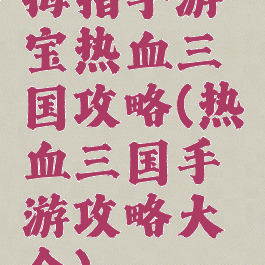 拇指手游
宝热血三
国攻略(热
血三国手
游攻略大
全)